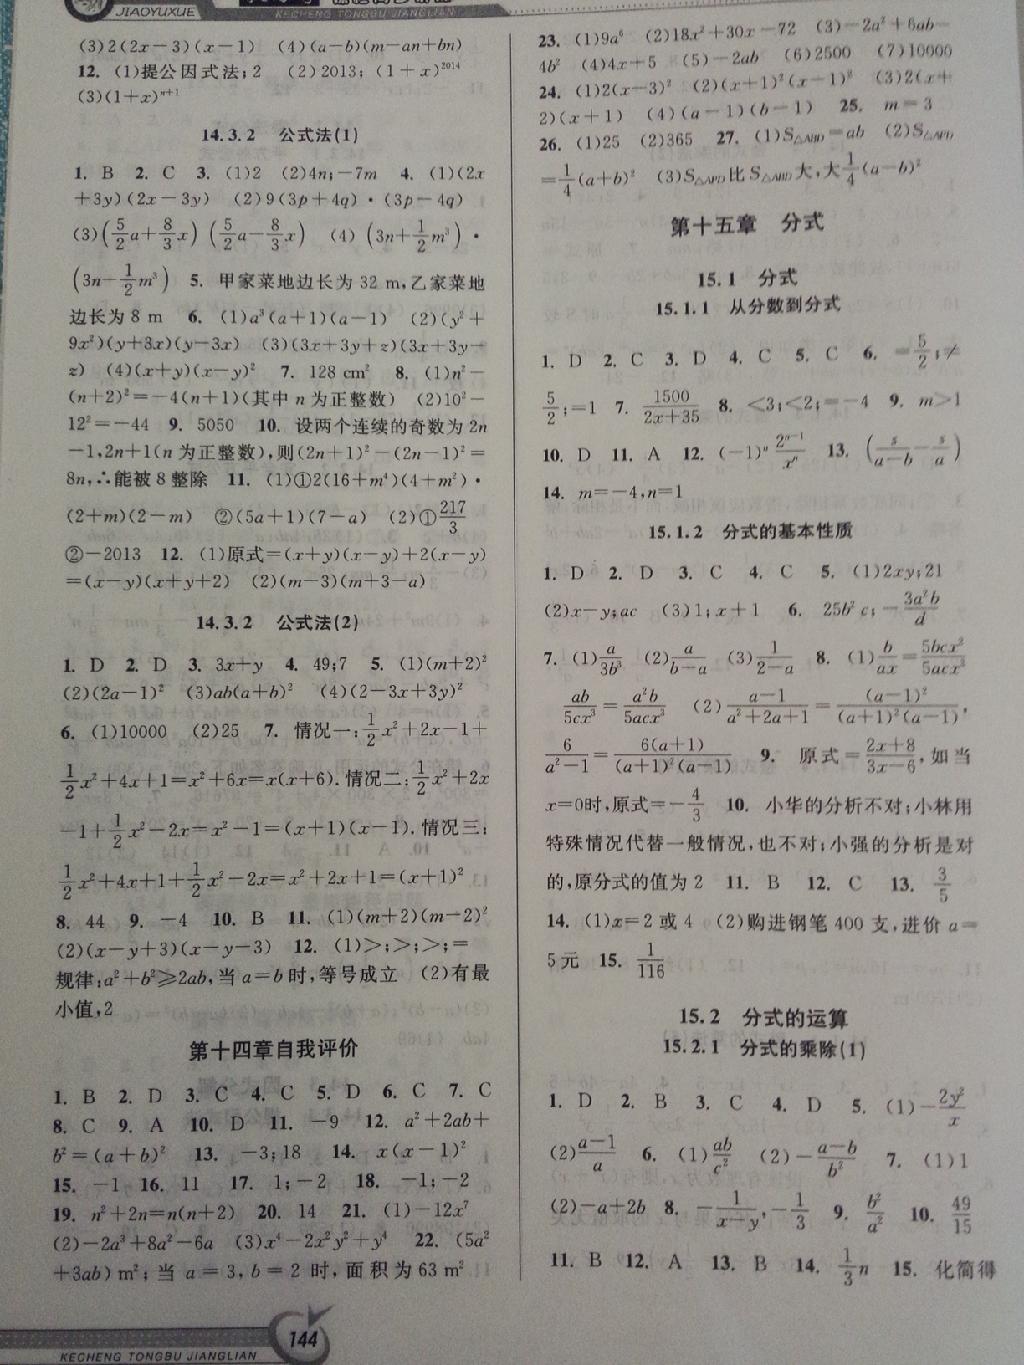 JIAOYUXUE
KECHENG TONGBU JIANGLIAN
(3)2(2x-3)(x-1) (4)(a-b)(m-an+bn)
12. (1)提公因式法;2 (2)2013;(1+x)²⁰¹⁴
(3)(1+x)ⁿ⁺¹
14.3.2 公式法(1)
1. B 2. C 3. (1)2 (2)4n;-7m 4. (1)(2x
+3y)(2x-3y) (2)9(3p+4q)·(3p-4q)
(3)(5/2 a+8/3 x)(5/2 a-8/3 x) (4)(3n+1/2 m³)·
(3n-1/2 m³) 5. 甲家菜地边长为32 m,乙家菜地
边长为8 m 6. (1)a³(a+1)(a-1) (2)(y²+
9x²)(y+3x)(y-3x) (3)(3x+3y+z)(3x+3y-
z) (4)(x+y)(x-y)² 7. 128 cm² 8. (1)n²-
(n+2)²=-4(n+1)(其中n为正整数) (2)10²-
12²=-44 9. 5050 10. 设两个连续的奇数为2n
-1,2n+1(n为正整数),则(2n+1)²-(2n-1)²=
8n,∴能被8整除 11. (1)①2(16+m⁴)(4+m²)·
(2+m)(2-m) ②(5a+1)(7-a) (2)①217/3
②-2013 12. (1)原式=(x+y)(x-y)+2(x-y)
=(x-y)(x+y+2) (2)(m-3)(m+3-a)
14.3.2 公式法(2)
1. D 2. D 3. 3x+y 4. 49;7 5. (1)(m+2)²
(2)(2a-1)² (3)ab(a+b)² (4)(2-3x+3y)²
6. (1)10000 (2)25 7. 情况一:1/2 x²+2x-1+
1/2 x²+4x+1=x²+6x=x(x+6).情况二:1/2 x²+2x
-1+1/2 x²-2x=x²-1=(x+1)(x-1).情况三:
1/2 x²+4x+1+1/2 x²-2x=x²+2x+1=(x+1)²
8. 44 9. -4 10. B 11. (1)(m+2)(m-2)²
(2)(x-y+3)(x-y-3) 12. (1)>;>;>;=
规律:a²+b²≥2ab,当a=b时,等号成立 (2)有最
小值,2
第十四章自我评价
1. B 2. D 3. C 4. C 5. D 6. C 7. C
8. C 9. A 10. D 11. -9 12. a²+2ab+
b²=(a+b)² 13. -3;18 14. x(x-1)²
15. -1 16. 11 17. 1;-2 18. -1;-2
19. n²+2n=n(n+2) 20. 14 21. (1)-12x⁷
(2)-2a³+8a²-6a (3)x⁴-2x²y²+y⁴ 22. (5a²
+3ab)m²;当a=3,b=2时,面积为63 m²
144
KECHENG TONGBU JIANGLIAN
23. (1)9a⁶ (2)18x²+30x-72 (3)-2a²+6ab-
4b² (4)4x+5 (5)-2ab (6)2500 (7)10000
24. (1)2(x-3)² (2)(x+1)²(x-1)² (3)2(x+
2)(x+1) (4)(a-1)(b-1) 25. m=3
26. (1)25 (2)365 27. (1)S△ABD=ab (2)S△APD
=1/4(a+b)² (3)S△APD比S△ABD大,大1/4(a-b)²
第十五章 分式
15.1 分式
15.1.1 从分数到分式
1. D 2. C 3. D 4. C 5. C 6. =5/2;≠
5/2;=1 7. 1500/2x+35 8. <3;<2;=-4 9. m>1
10. D 11. A 12. (-1)ⁿ 2ⁿ⁻¹/xⁿ 13. (s/a-b - s/a)
14. m=-4,n=1
15.1.2 分式的基本性质
1. D 2. D 3. C 4. C 5. (1)2xy;21
(2)x-y;ac (3)1;x+1 6. 25b²c;-3a²b/d
7. (1)a/3b³ (2)a/b-a (3)1/2-a 8. (1)b/ax=5bcx²/5acx³
ab/5cx³=a²b/5acx³ (2)a-1/a²+2a+1=(a-1)²/(a+1)²(a-1),
6/a²-1=6(a+1)/(a+1)²(a-1) 9. 原式=2x+8/3x-6,如当
x=0时,原式=-4/3 10. 小华的分析不对;小林用
特殊情况代替一般情况,也不对;小强的分析是对
的,原分式的值为2 11. B 12. C 13. 3/5
14. (1)x=2或4 (2)购进钢笔400支,进价a=
5元 15. 1/116
15.2 分式的运算
15.2.1 分式的乘除(1)
1. D 2. B 3. C 4. D 5. (1)-2y²/x
(2)a-1/a 6. (1)ab/c² (2)-a-b/b² 7. (1)1
(2)-a+2b 8. -1/x-y,-1/3 9. b²/a² 10. 49/15
11. B 12. A 13. B 14. 1/3 n 15. 化简得